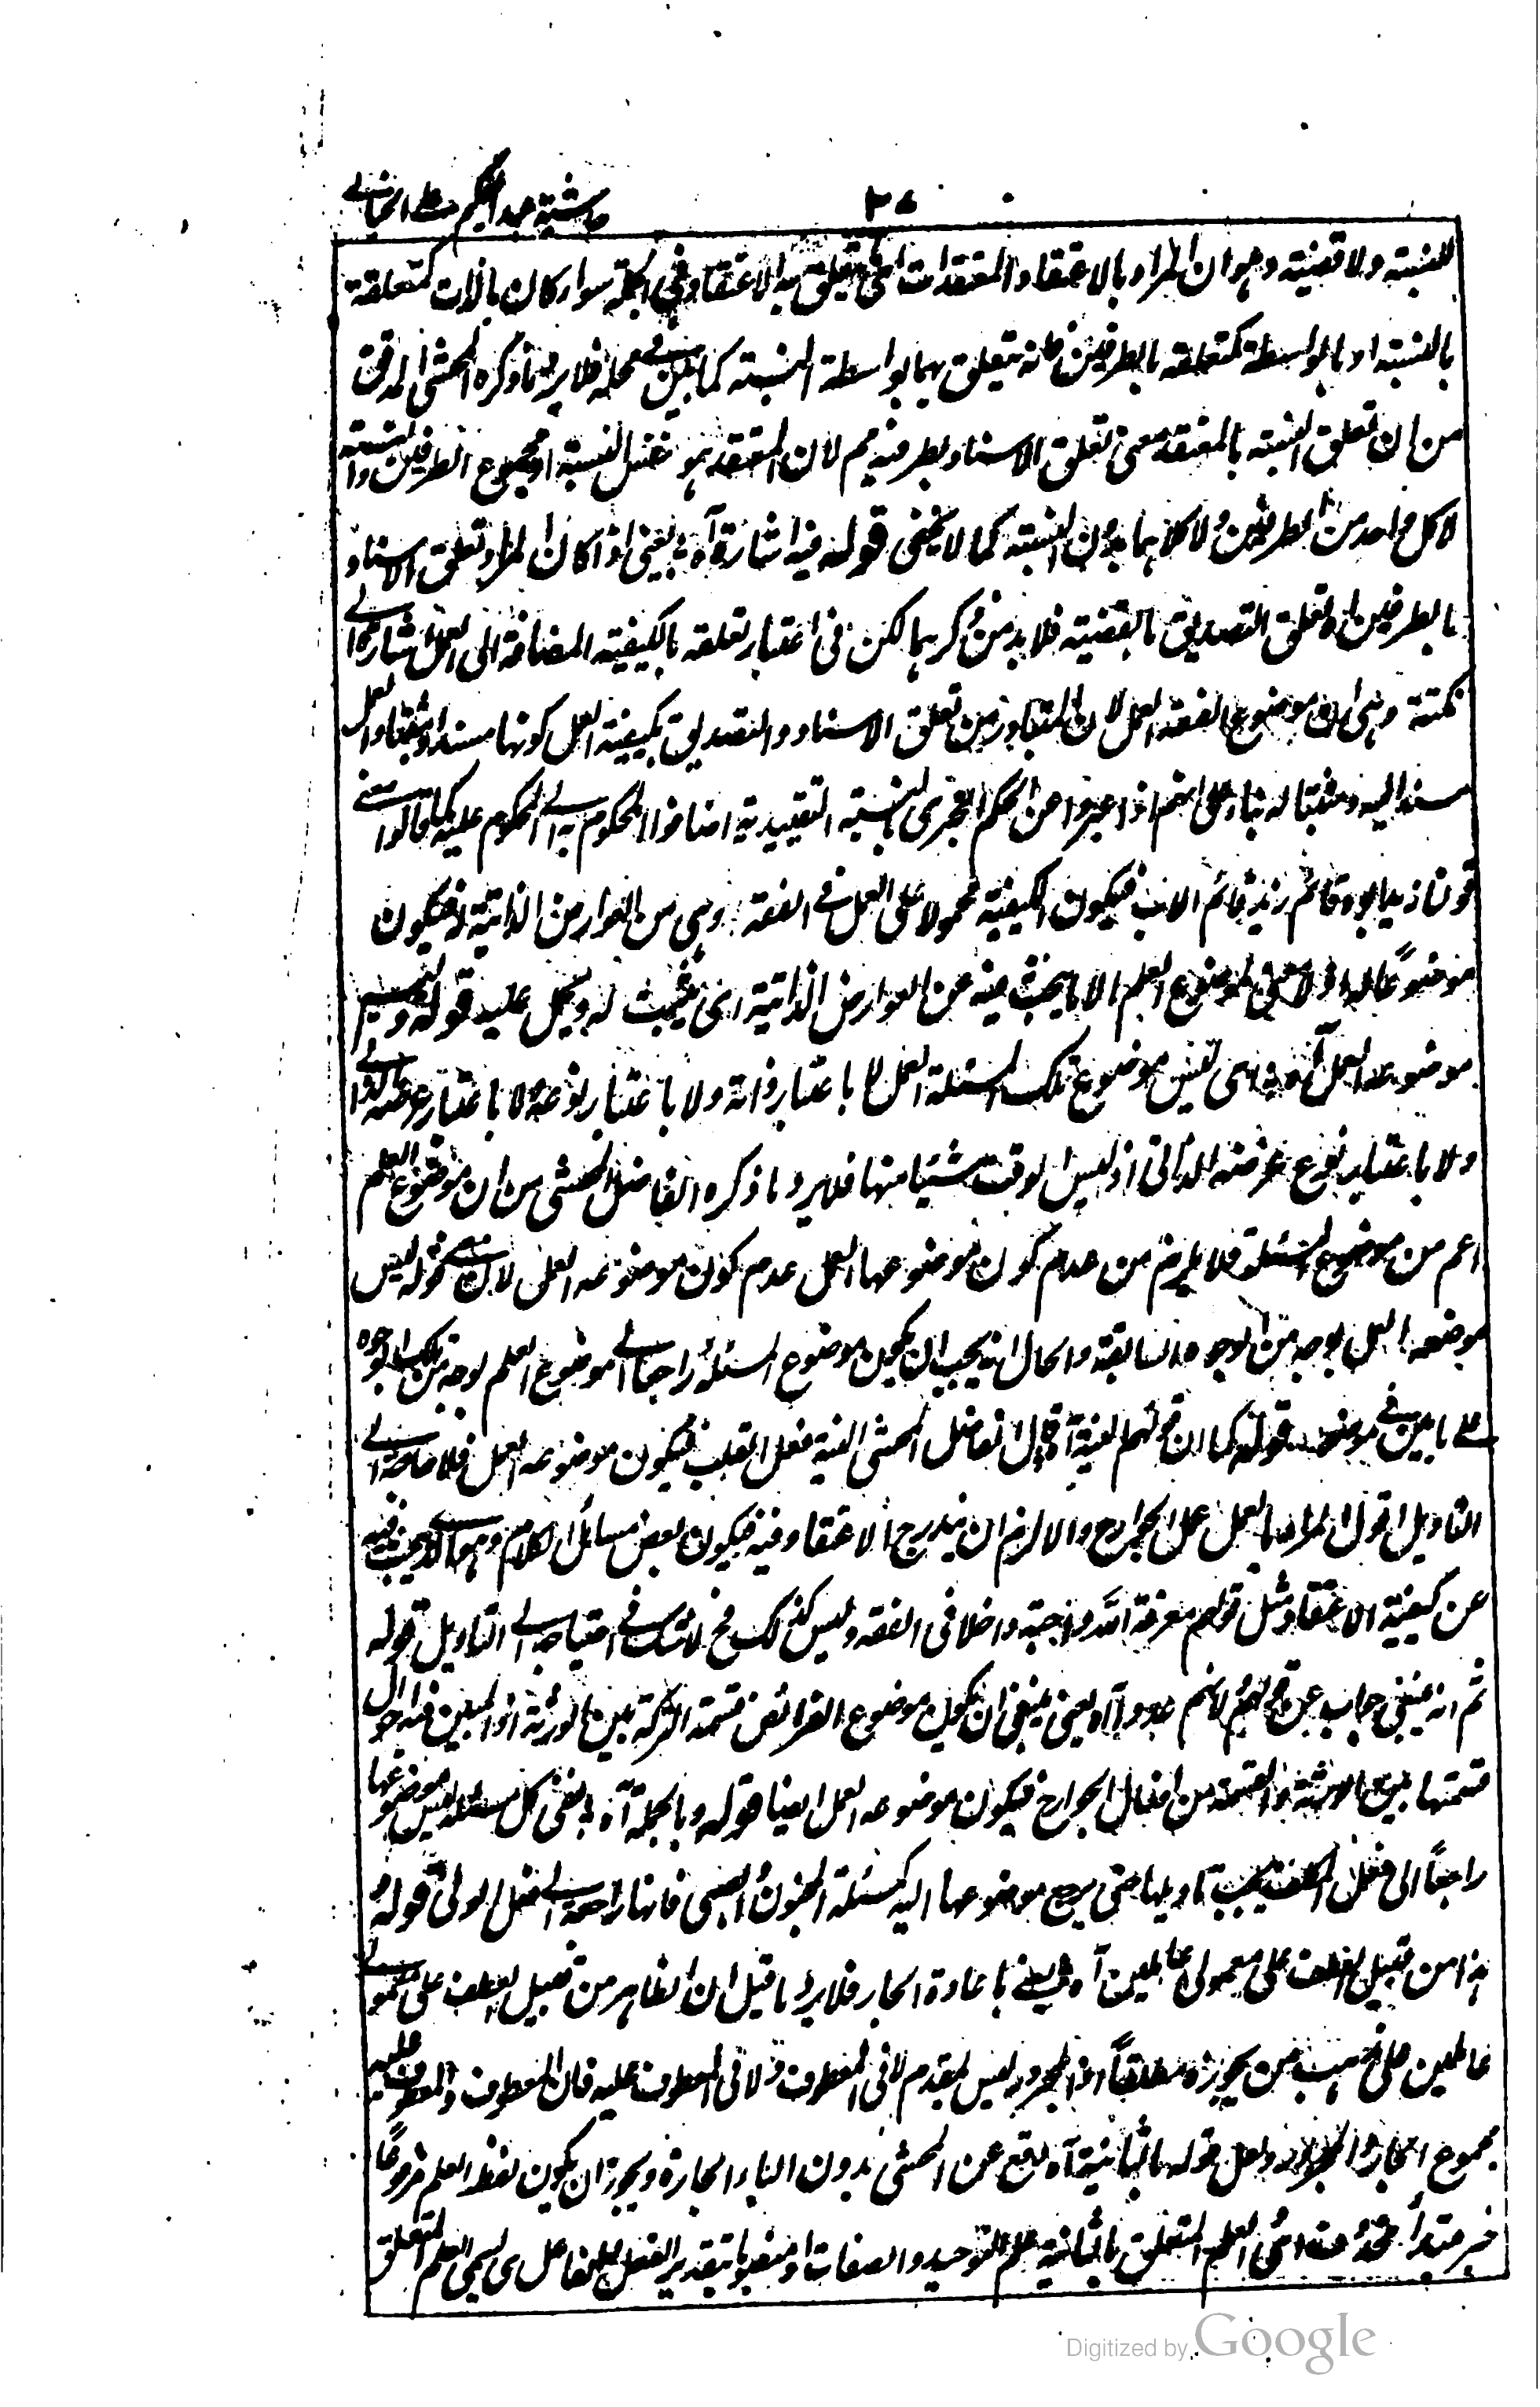 ٢٧
حاشية عبد الحكيم على الخيالي
للنسبة ولا قضية وهو ان المراد بالاعتقاد المعتقدات اى يتعلق به الاعتقاد فى الجملة سواء كان بالذات كتعلقه
بالنسبة او بالواسطة كتعلقه بالطرفين فانه يتعلق بهما بواسطة النسبة كما بين في محله فلا يرد ما ذكره المحشى المدقق
من ان تعلق النسبة بالمعتقد معنى تعلق الاسناد بطرفيه مم لان المعتقد هو نفس النسبة او مجموع الطرفين والنسبة
لا كل واحد من الطرفين ولا كلاهما بدون النسبة كما لا يخفى قوله فيه اشارة آه يعنى اذا كان المراد تعلق الاسناد
بالطرفين او تعلق التصديق بالقضية فلا بد من ذكرهما لكن فى اعتبار تعلقه بالكيفية المضافة الى العمل اشارة الى
نكتة وهى ان موضوع الفقه العمل لان المتبادر من تعلق الاسناد والتصديق بكيفية العمل كونها مسندا ومثبتا والعمل
مسندا اليه ومثبتا له بناء على انهم اذا عبروا عن الحكم الخبرى بالنسبة التقييدية اضافوا المحكوم به الى المحكوم عليه كما قالوا فى
قولنا زيد ابوه قائم زيد قائم الاب فيكون الكيفية محمولا على العمل في الفقه وهى من العوارض الذاتية له فيكون
موضوعا له اذ لا معنى لموضوع العلم الا ما يبحث فيه عن العوارض الذاتية اى يثبت له ويحمل عليه قوله وليس
موضوعه العمل آه اى ليس موضوع تلك المسئلة العمل لا باعتبار ذاته ولا باعتبار نوعه ولا باعتبار عرضه الذاتي
ولا باعتبار نوع عرضه الذاتى اذ ليس الوقت شيئا منها فلا يرد ما ذكره الفاضل المحشى من ان موضوع العلم
اعم من موضوع المسئلة فلا يلزم من عدم كون موضوعها العمل عدم كون موضوعه العمل لان معنى قوله ليس
موضوعه العمل بوجه من الوجوه السابقة والحال انه يجب ان يكون موضوع المسئلة راجعا الى موضوع العلم بوجه من تلك الوجوه
على ما بين في موضعه قوله كما ان قولهم النية آه قال الفاضل المحشى النية فعل القلب فيكون موضوعه العمل فلا حاجة الى
التاويل اقول المراد بالعمل عمل الجوارح والا لزم ان يندرج الاعتقاد فيه فيكون بعض مسائل الكلام وهو الذي يبحث فيه
عن كيفية الاعتقاد مثل قولهم معرفة الله واجبة داخلا فى الفقه وليس كذلك فح لا شك في احتياجه الى التاويل قوله
ثم انه ينبغى جواب عن قولهم لانهم عدوا آه يعنى ينبغى ان يكون موضوع الفرائض قسمة التركة بين الورثة اذ المبين فيه احوال
قسمتها بين الورثة والقسمة من افعال الجوارح فيكون موضوعه العمل ايضا قوله وبالجملة آه يعنى كل مسئلة ليس موضوعها
راجعا الى فعل المكلف يجب تاويلها حتى يرجع موضوعها اليه كمسئلة المجنون والصبى فانها راجعة الى فعل الولى قوله
هذا من قبيل العطف على معمولى عاملين آه يعني باعادة الجار فلا يرد ما قيل ان الظاهر من قبيل العطف على معمولى
عاملين على مذهب من يجوزه مطلقا اذ المجرور ليس بمقدم لا فى المعطوف ولا فى المعطوف عليه فان المعطوف والمعطوف عليه
مجموع الجار والمجرور ولعل قوله بالثانية آه وقع عن المحشى بدون الباء الجارة ويجوز ان يكون لفظ العلم مرفوعا
خبر مبتدأ محذوف اى العلم المتعلق بالثانية علم التوحيد والصفات او منصوبا بتقدير الفعل للفاعل اى يسمى العلم المتعلق
Digitized by Google